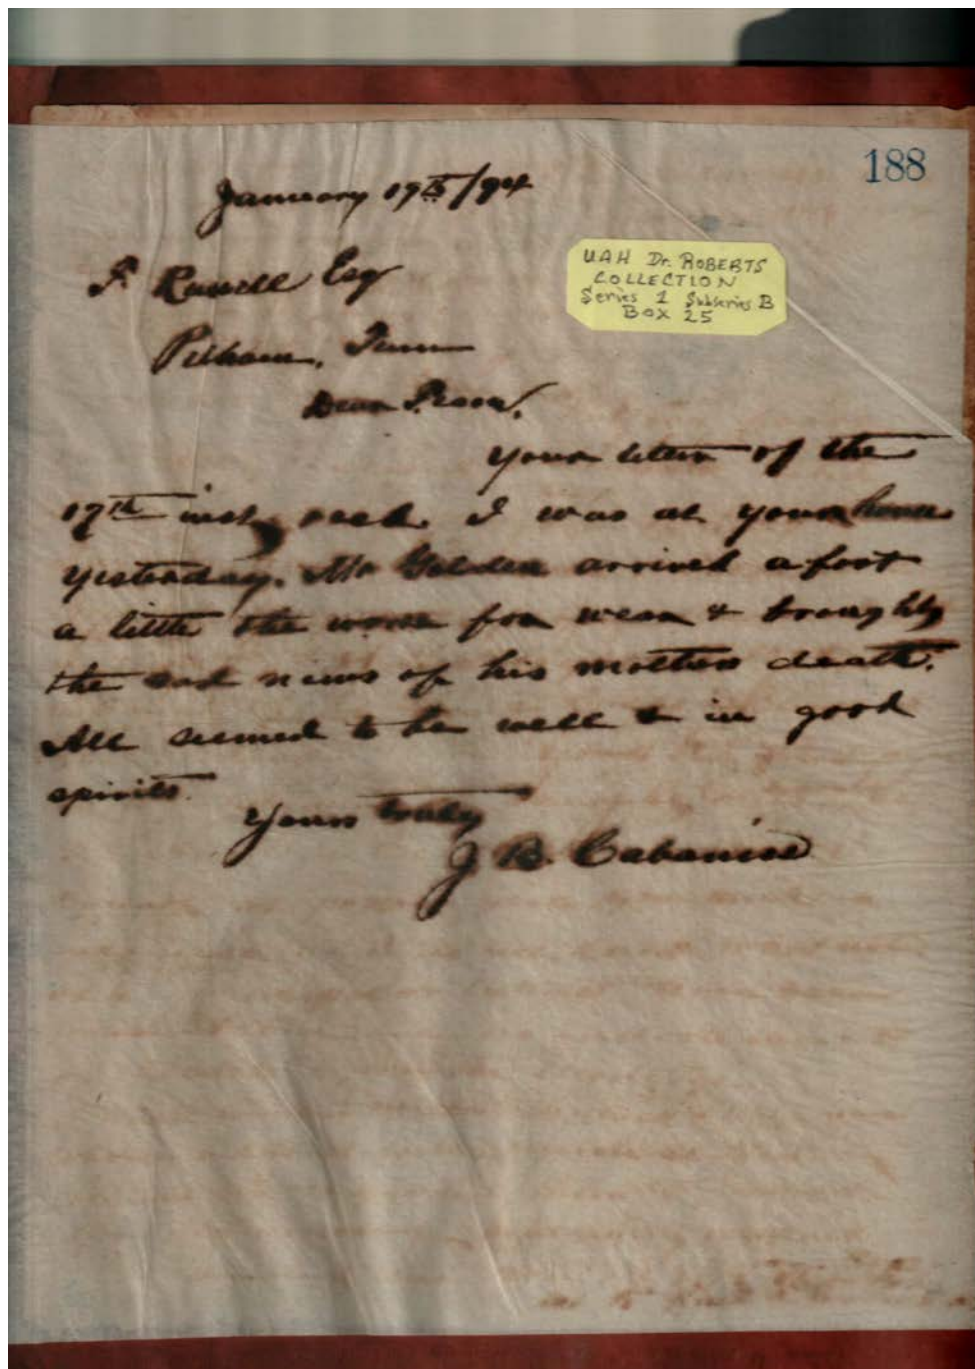 188
January 19th/94
UAH Dr. ROBERTS
COLLECTION
Series 1 Subseries B
BOX 25
Russell Esq
Pelham, Tenn
Dear
Your letter of the
17th inst recd. I was at your house
yesterday. Mr Golden arrived a foot
a little the worse for wear & brought
the sad news of his mothers death.
All seemed to be well & in good
spirits.
Yours truly
J B. Cabaniss